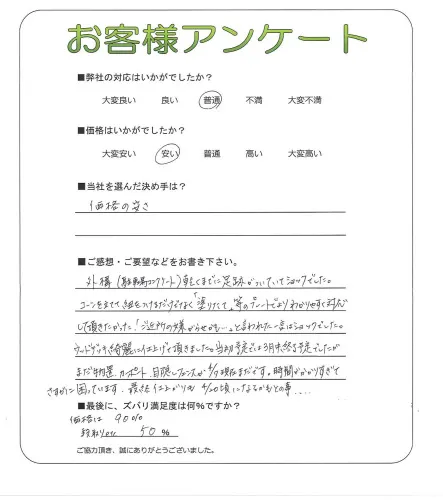 お客様アンケート
■弊社の対応はいかがでしたか?
大変良い 良い 普通 不満 大変不満
■価格はいかがでしたか?
大変安い 安い 普通 高い 大変高い
■当社を選んだ決め手は?
価格の安さ
■ご感想・ご要望などをお書き下さい。
外構(駐車場コンクリート)乾くまでに足跡がついていてショックでした。
コーンを立てて紐をつけるだけでなく「塗りたて」等のプレートでよりわかりやすく対応
して頂きたかった!「ご近所の様からせかも…」と言われた一言はショックでした。
ウッドデッキ綺麗に仕上げて頂きました。当初予定では3月中終了予定でしたが
まだ物置、カーポート、目隠しフェンスが4/7現在まだです。時間がかかりすぎて
さすがに困っています。最終仕上がりも4/20頃になるかもとの事....
■最後に、ズバリ満足度は何%ですか?
価格は 90%
50%
ご協力頂き、誠にありがとうございました。